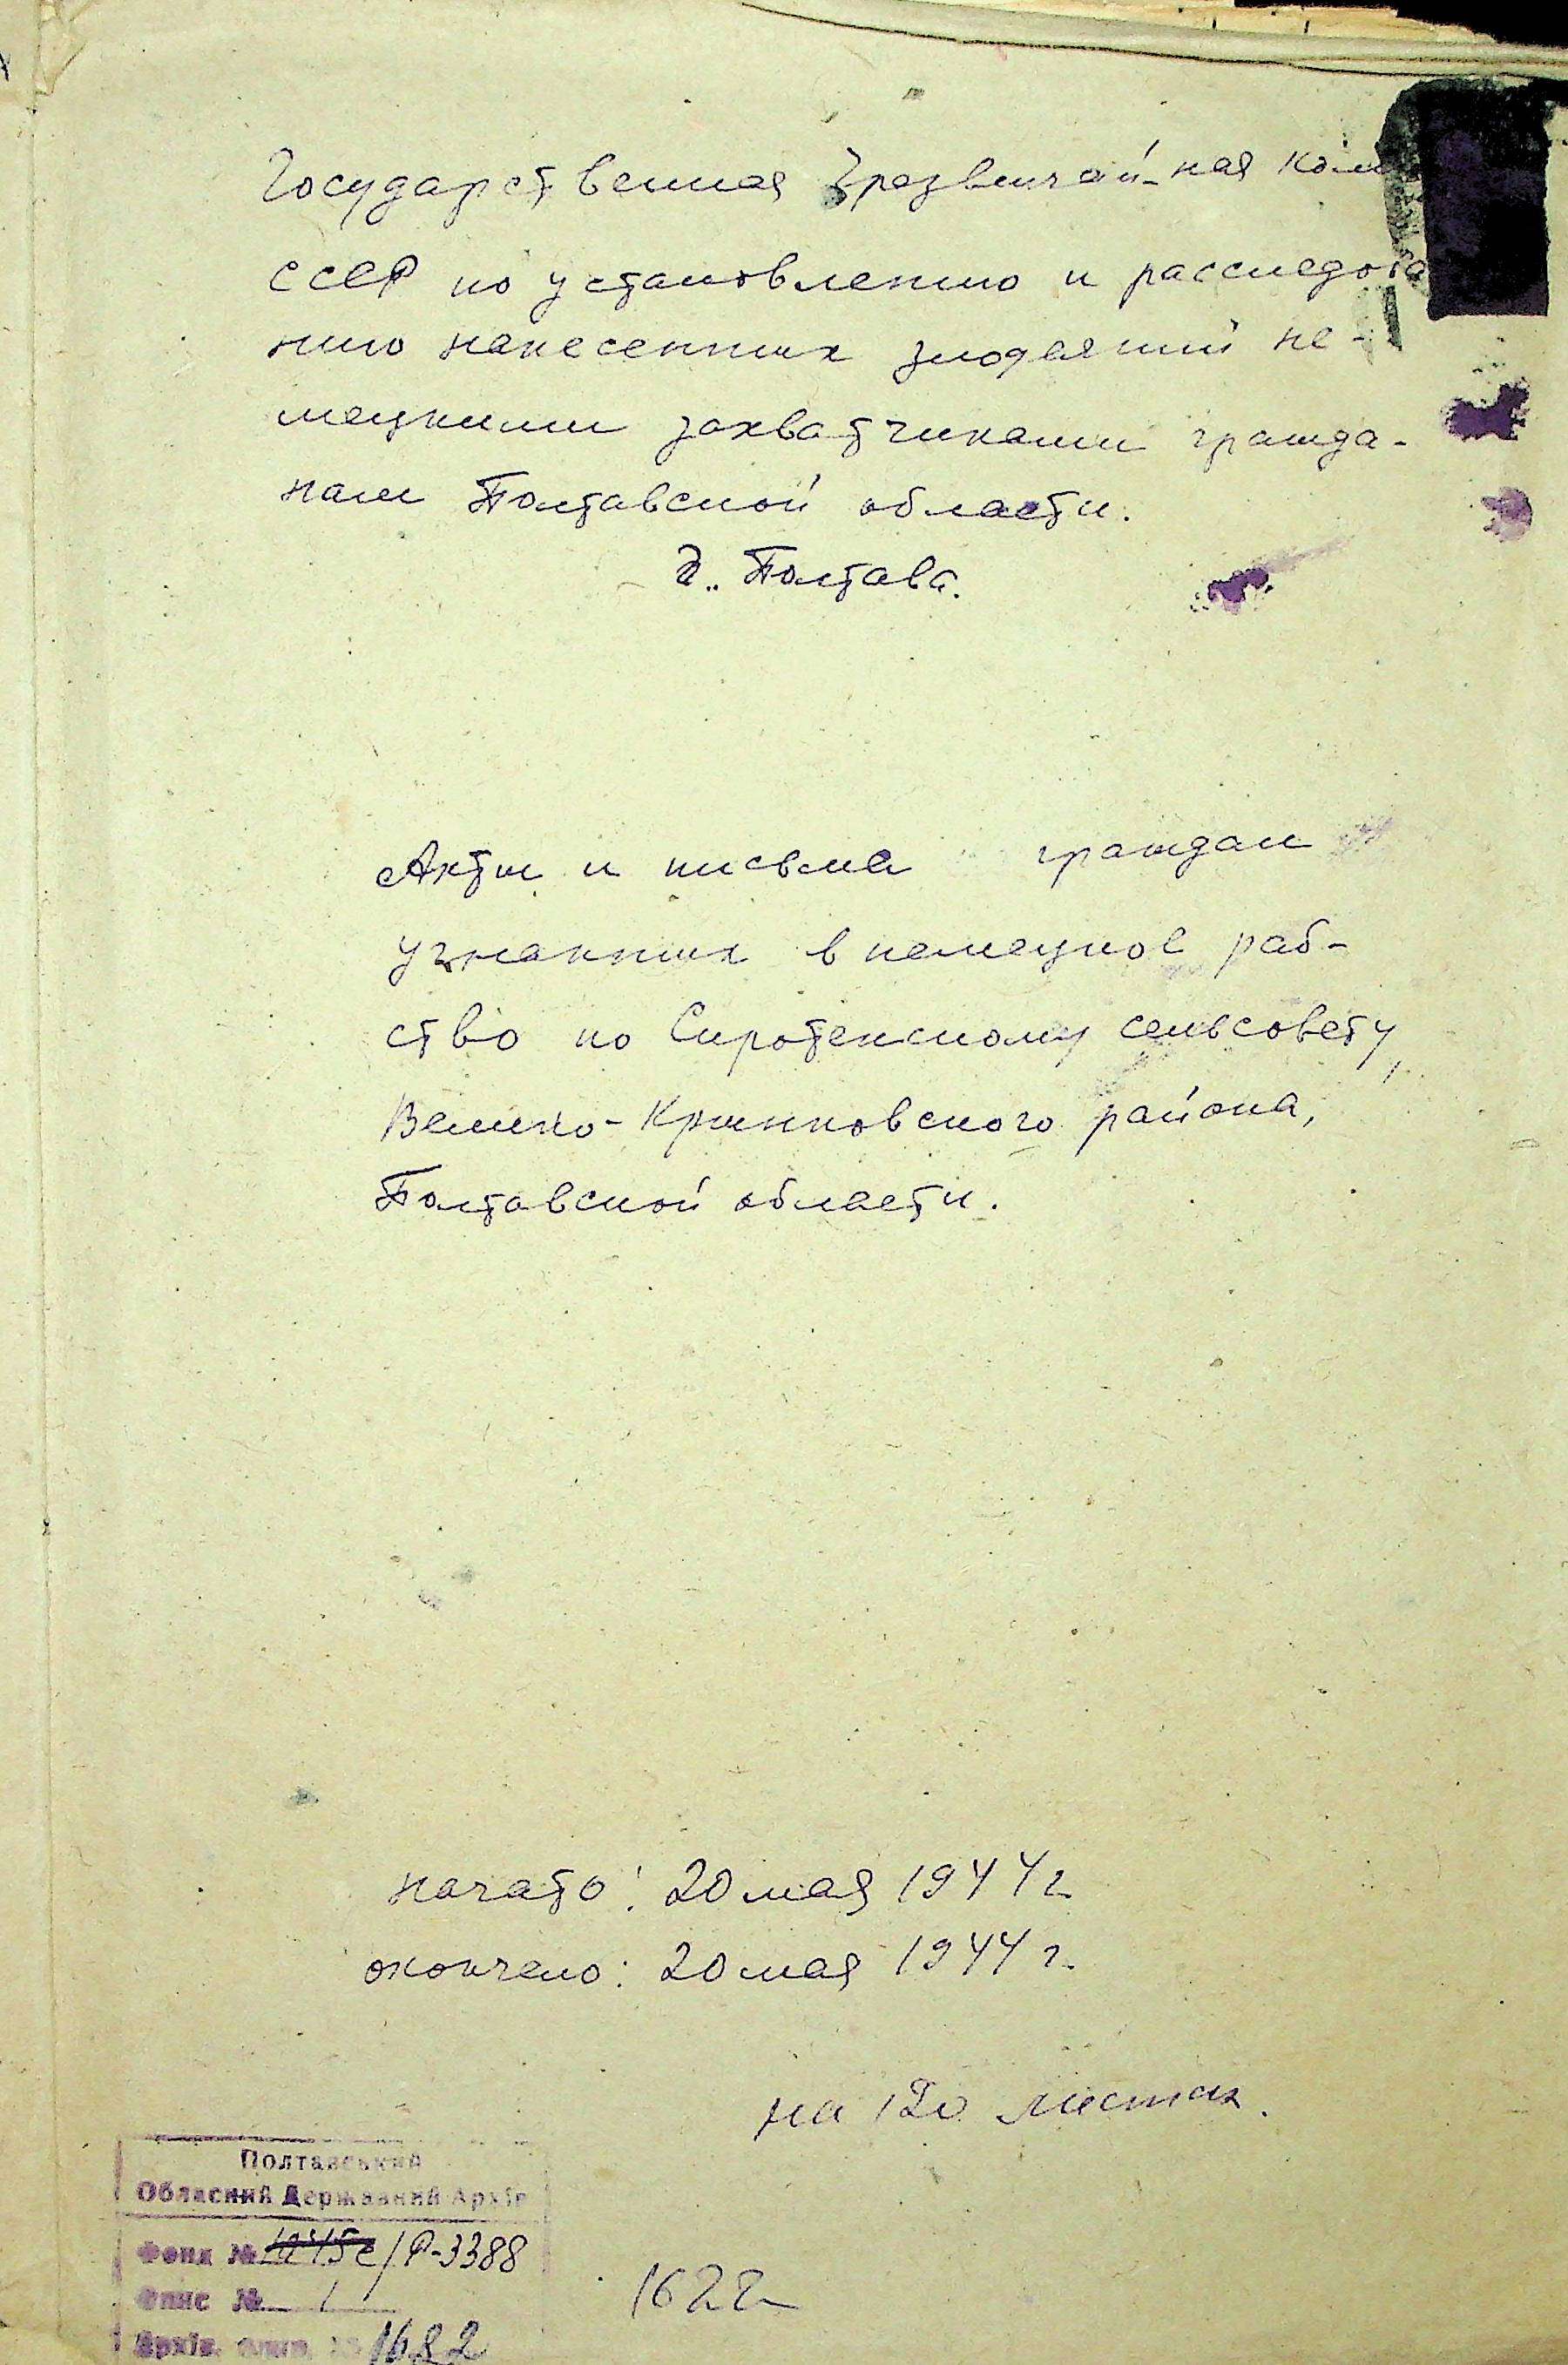 Государственная Чрезвычай-ная Ком
СССР по установлению и расследова
нию нанесенных злодеяний не-
мецкими захватчиками гражда-
нам Полтавской области.
г. Полтава.
Акты и письма граждан
угнанных в немецкое раб-
ство по Сиротенскому сельсовету,
Велико-Крынковского района,
Полтавской области.
начато: 20 мая 1944 г.
окончено: 20 мая 1944 г.
на 120 листах.
Полтавський
Обласний Державний Архів
Фонд № 1045с/Р-3388
Опис № 1
1622
Архів. 1682